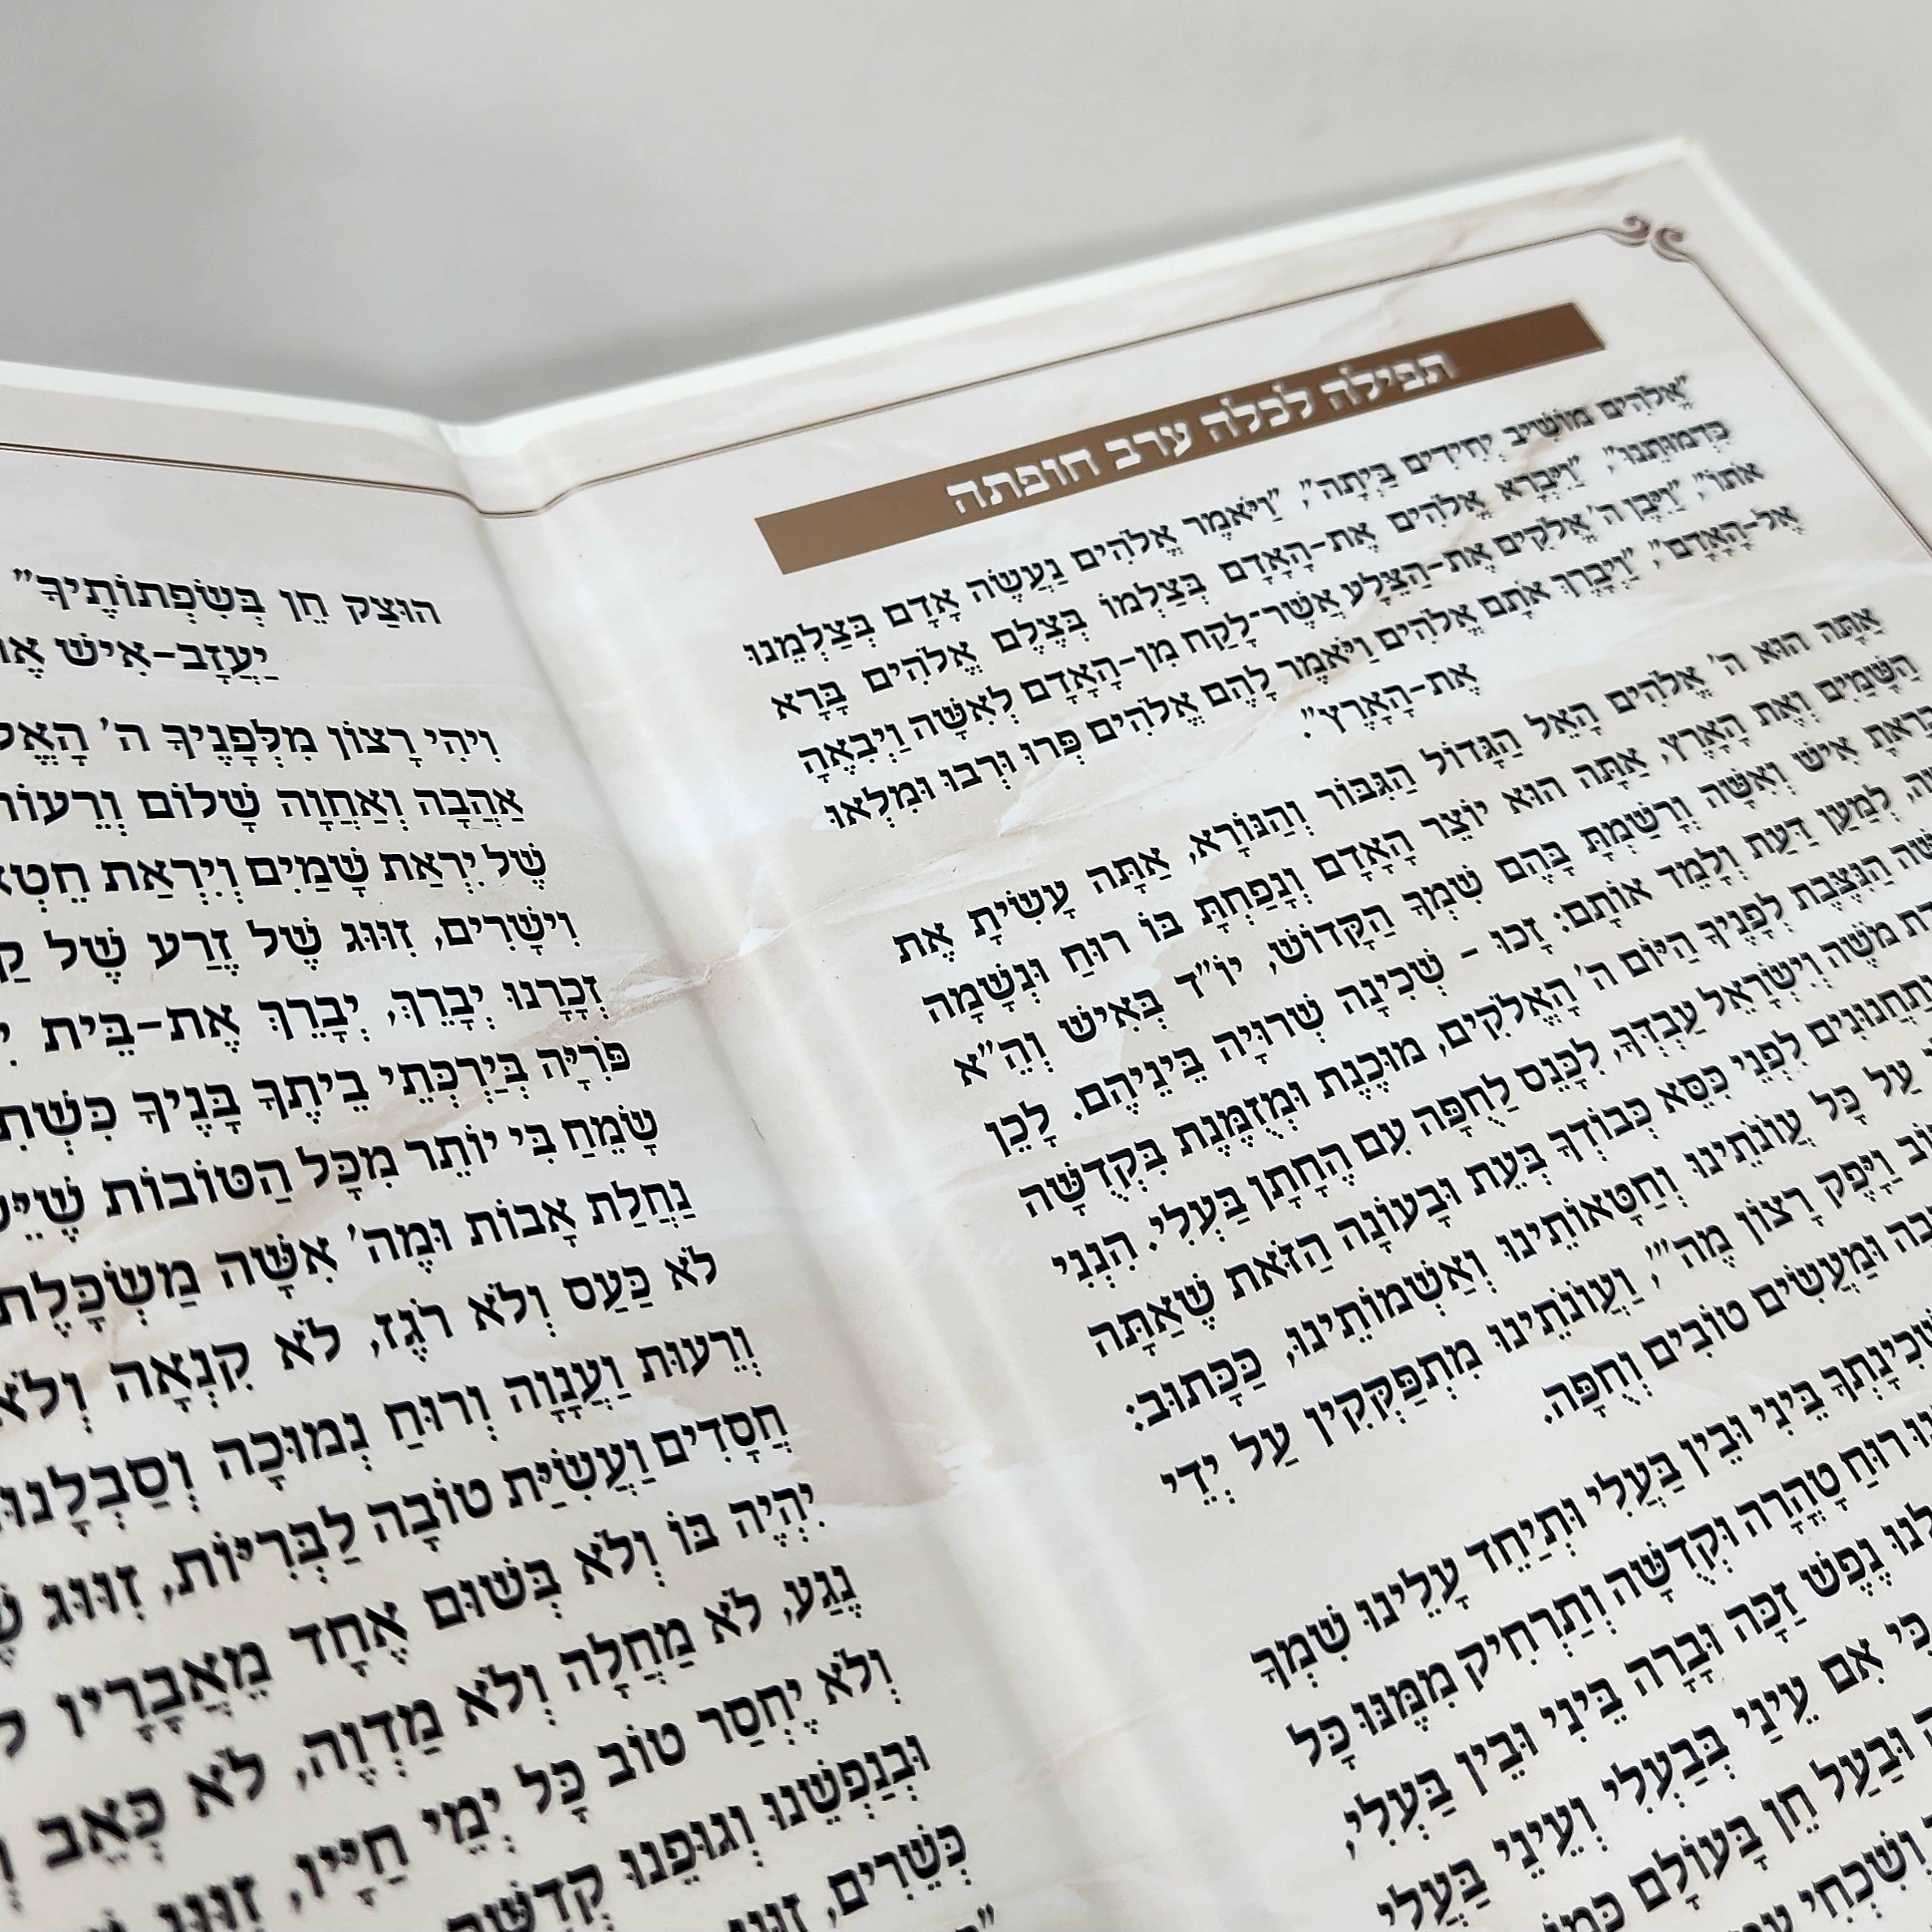 תפילה לכלה ערב חופתה
"אֱלֹהִים מוֹשִׁיב יְחִידִים בַּיְתָה", "וַיֹּאמֶר אֱלֹהִים נַעֲשֶׂה אָדָם בְּצַלְמֵנוּ
כִּדְמוּתֵנוּ", "וַיִּבְרָא אֱלֹהִים אֶת-הָאָדָם בְּצַלְמוֹ בְּצֶלֶם אֱלֹהִים בָּרָא
אֹתוֹ", "וַיִּבֶן ה' אֱלֹקִים אֶת-הַצֵּלָע אֲשֶׁר-לָקַח מִן-הָאָדָם לְאִשָּׁה וַיְבִאֶהָ
אֶל-הָאָדָם", "וַיְבָרֶךְ אֹתָם אֱלֹהִים וַיֹּאמֶר לָהֶם אֱלֹהִים פְּרוּ וּרְבוּ וּמִלְאוּ
אֶת-הָאָרֶץ".
אַתָּה הוּא ה' אֱלֹהִים הָאֵל הַגָּדוֹל הַגִּבּוֹר וְהַנּוֹרָא, אַתָּה עָשִׂיתָ אֶת
הַשָּׁמַיִם וְאֶת הָאָרֶץ, אַתָּה הוּא יוֹצֵר הָאָדָם וְנָפַחְתָּ בּוֹ רוּחַ וּנְשָׁמָה
אִישׁ וְאִשָּׁה וְרָשַׁמְתָּ בָּהֶם שִׁמְךָ הַקָּדוֹשׁ, יוֹ"ד בְּאִישׁ וְהֵ"א
לְמַעַן דַּעַת וְלָמֵד אוֹתָם: זָכוּ - שְׁכִינָה שְׁרוּיָה בֵּינֵיהֶם. לָכֵן
הַנִּצֶּבֶת לְפָנֶיךָ הַיּוֹם ה' הָאֱלֹקִים, מוּכֶנֶת וּמְזֻמֶּנֶת בִּקְדֻשָּׁה
מֹשֶׁה וְיִשְׂרָאֵל עַבְדְּךָ, לִכָּנֵס לַחֻפָּה עִם הֶחָתָן בַּעְלִי. הִנְנִי
לִפְנֵי כִּסֵּא כְּבוֹדְךָ בְּעֵת וּבָעוֹנָה הַזֹּאת שֶׁאַתָּה
עַל כָּל עֲוֹנֹתֵינוּ וְחַטָּאוֹתֵינוּ וְאַשְׁמוֹתֵינוּ, כַּכָּתוּב:
וַיָּפֶק רָצוֹן מֶה'", וַעֲוֹנֹתֵינוּ מִתְפַּקְּקִין עַל יְדֵי
וּמַעֲשִׂים טוֹבִים וְחֻפָּה.
שְׁכִינָתְךָ בֵּינִי וּבֵין בַּעְלִי וּתְיַחֵד עָלֵינוּ שִׁמְךָ
רוּחַ טָהֳרָה וּקְדֻשָּׁה וְתַרְחִיק מִמֶּנּוּ כָּל
נֶפֶשׁ זַכָּה וּבָרָה בֵּינִי וּבֵין בַּעְלִי,
כִּי אִם עֵינַי בְּבַעְלִי וְעֵינֵי בַּעְלִי
וּבַעַל חֵן בָּעוֹלָם
וְשִׁכְחִי
הוּצַק חֵן בְּשִׂפְתוֹתֶיךָ"
יַעֲזָב-אִישׁ
וִיהִי רָצוֹן מִלְּפָנֶיךָ ה'
אַהֲבָה וְאַחֲוָה שָׁלוֹם
שֶׁל יִרְאַת שָׁמַיִם וְיִרְאַת
וִישָׁרִים, זִוּוּג שֶׁל זֶרַע שֶׁל
זְכָרָנוּ יְבָרֵךְ, יְבָרֵךְ אֶת-בֵּית
פֹּרִיָּה בְּיַרְכְּתֵי בֵיתֶךָ בָּנֶיךָ
שָׂמֵחַ בִּי יוֹתֵר מִכָּל הַטּוֹבוֹת
נַחֲלַת אָבוֹת וּמֶה' אִשָּׁה מַשְׂכָּלֶת
לֹא כַּעַס וְלֹא רֹגֶז, לֹא קִנְאָה וְלֹא
וְרֵעוּת וַעֲנָוָה וְרוּחַ נְמוּכָה
חֲסָדִים וַעֲשִׂיַּת טוֹבָה לַבְּרִיּוֹת, זִוּוּג
יִהְיֶה בּוֹ וְלֹא בְּשׁוּם אֶחָד מֵאֲבָרָיו
נֶגַע, לֹא מַחֲלָה וְלֹא מַדְוֶה, לֹא כְּאֵב
וְלֹא יֶחְסַר טוֹב כָּל יְמֵי חַיָּיו, זִוּוּג
וּבְנַפְשֵׁנוּ וְגוּפֵנוּ
כְּשֵׁרִים,